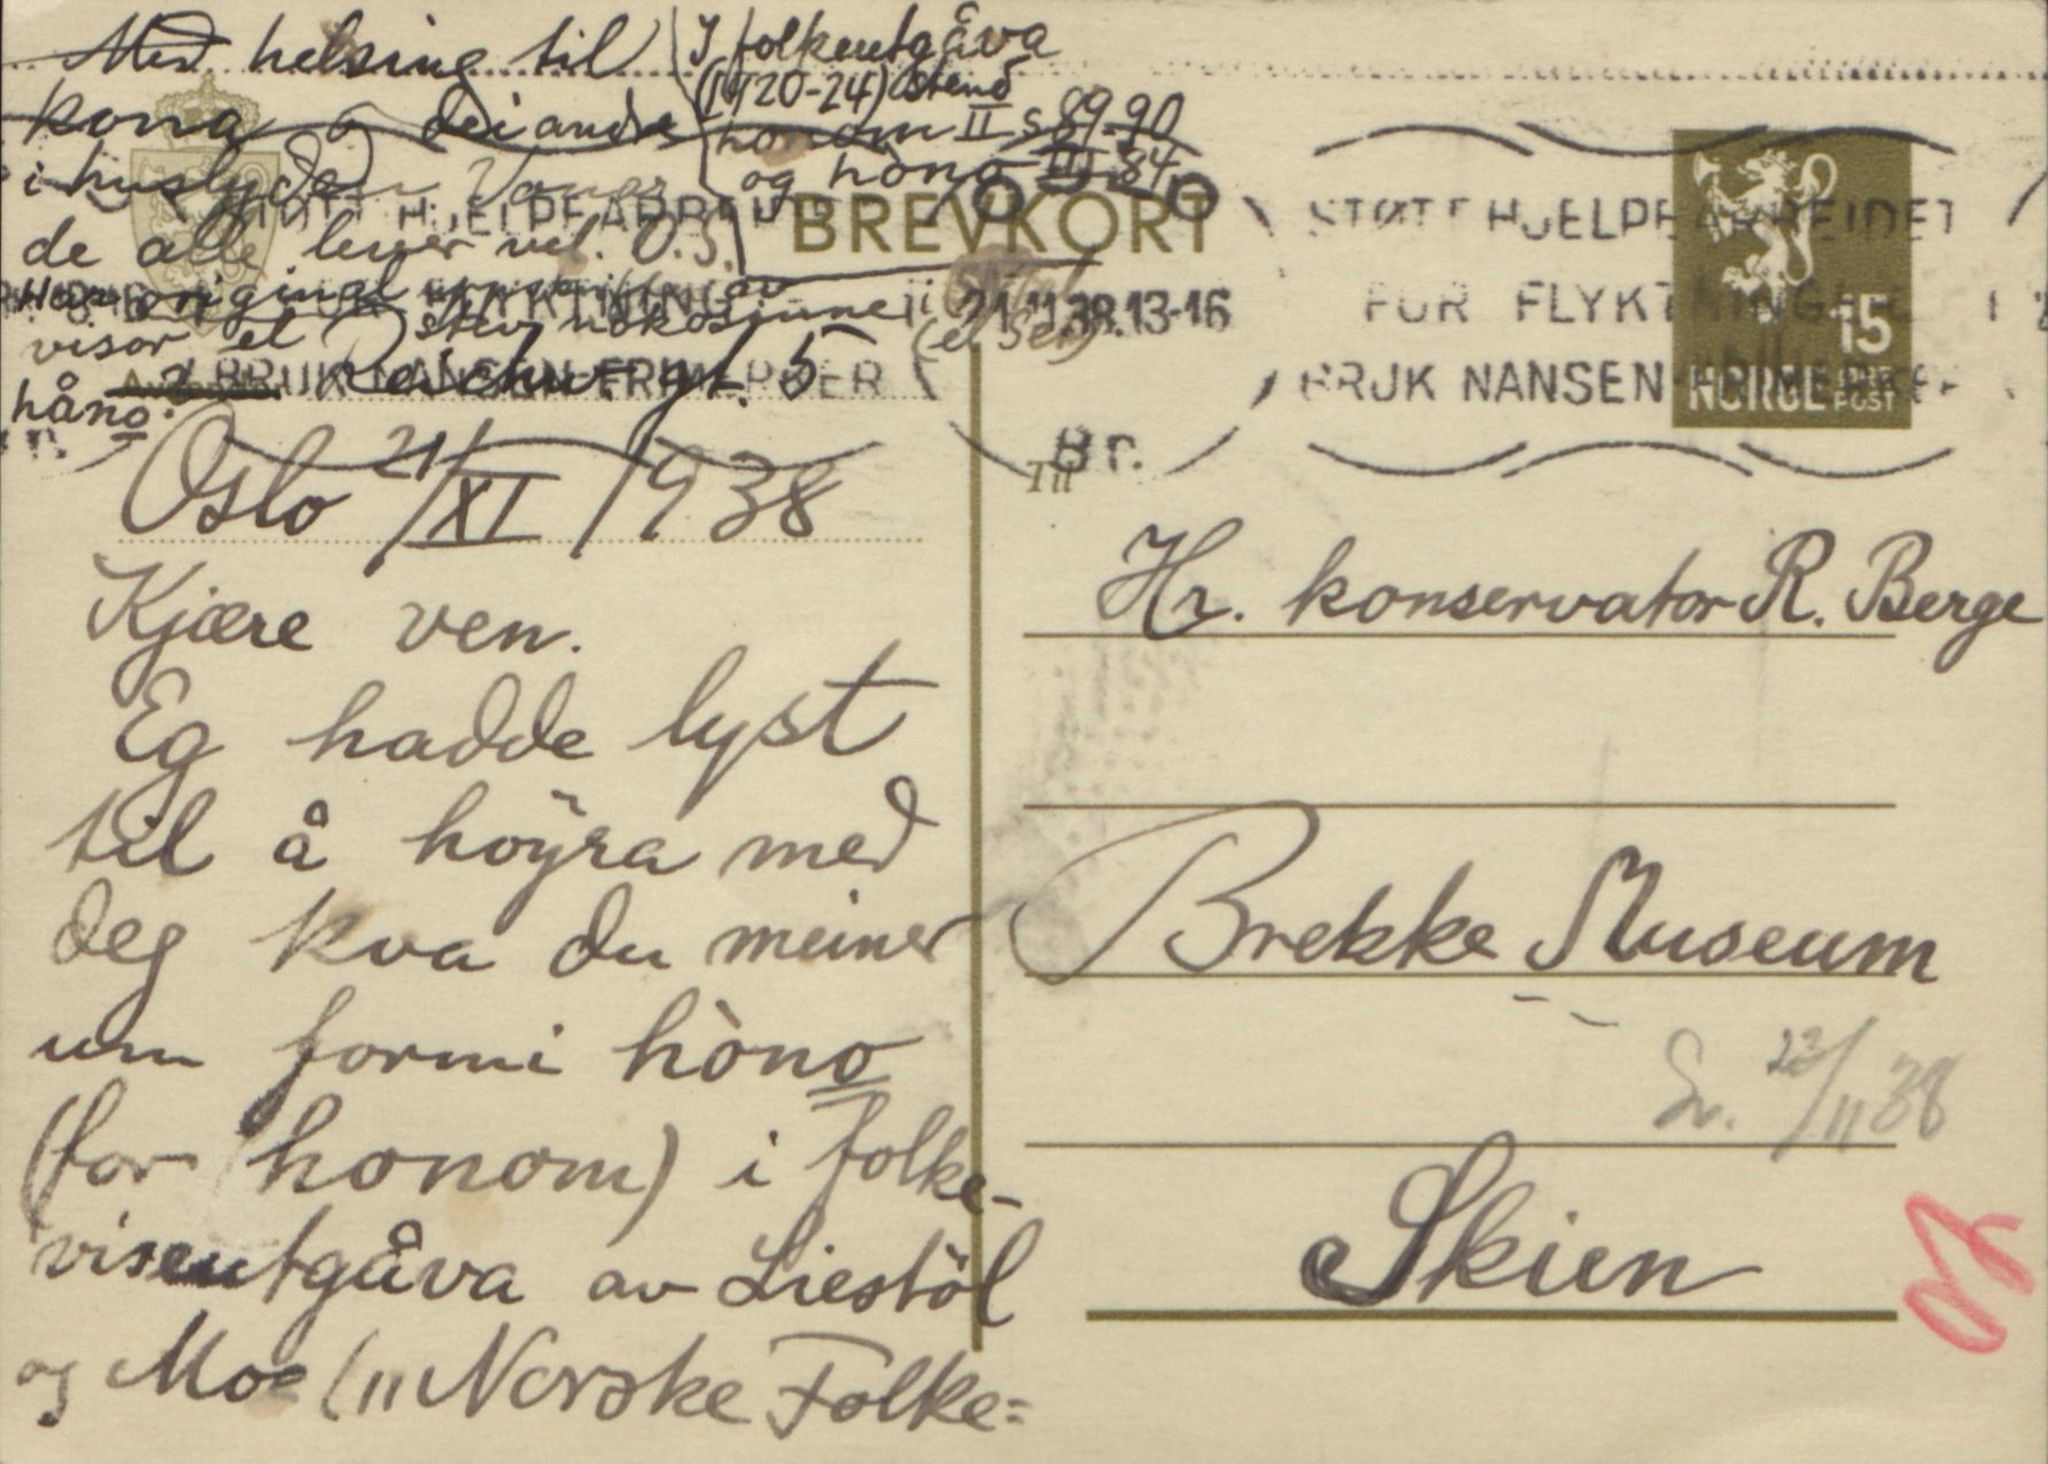 Med helsing til
kona o dei andre
i huslyden Vonar
de alle lever vel. O.S.
Har original
visor et stev nokosinne
håno?
I folkeutgåva
(1920-24) stend
honom II s 89-90
og hòno III 84.
BREVKORT
STØTT HJELPEARBEIDET
FOR FLYKTNINGER
BRUK NANSEN-FRIMERKER
21.11.38.13-16
Br.
STØTT HJELPEARBEIDET
FOR FLYKTNINGER
BRUK NANSEN-FRIMERKER
15
NORGE
POST
gt. 5
Oslo 21/XI 1938
Kjære ven.
Eg hadde lyst
til å høyra med
deg kva du meiner
um formi hòno
(for honom) i folke-
viseutgåva av Liestöl
og Moe (" Norske Folke=
Til
Hr. konservator R. Berge
Brekke Museum
Sv. 22/11 38
Skien